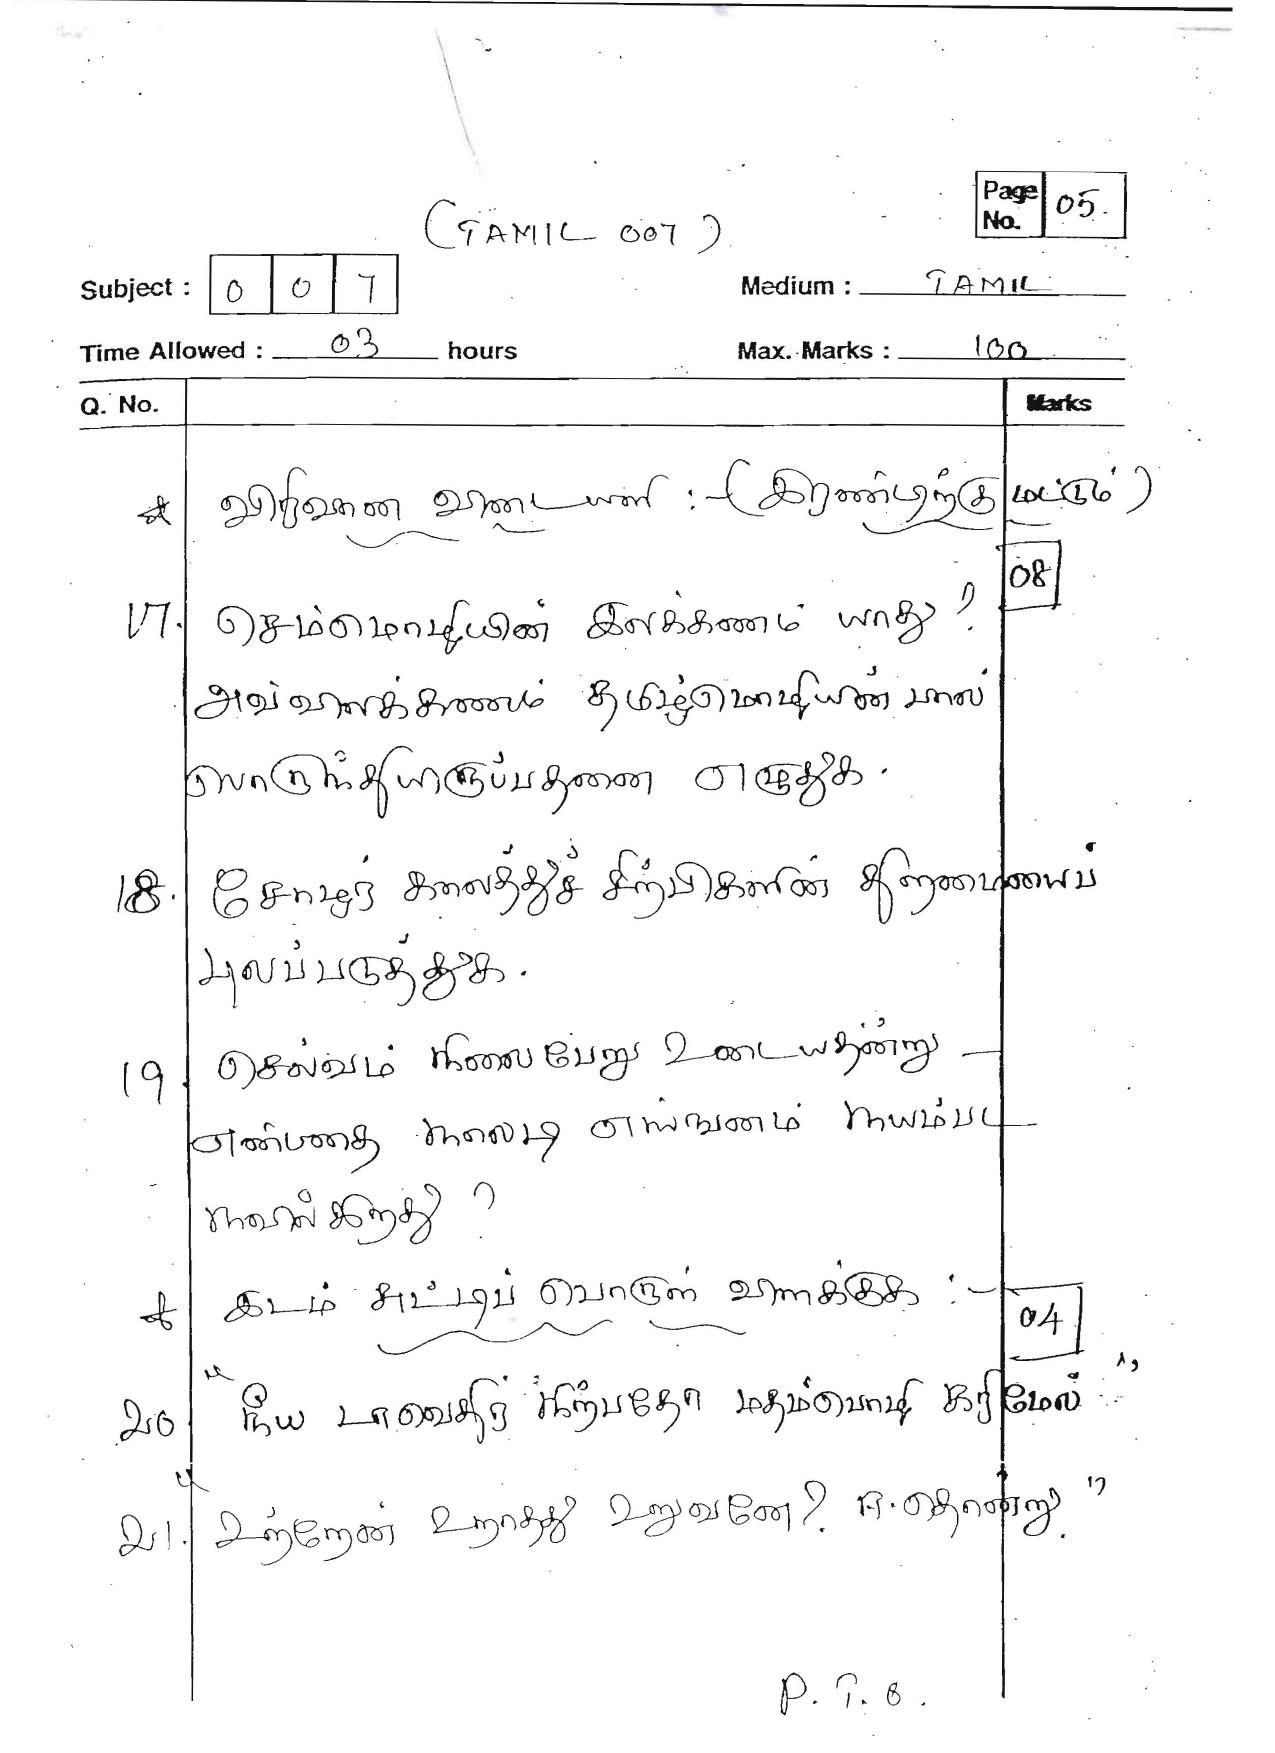 Page No. 05.
(TAMIL 007)
Subject : 0 0 7 Medium : TAMIL
Time Allowed : 03 hours Max. Marks : 100
Q. No. Marks
விரிவான விடையளி :- (இரண்டிற்கு மட்டும்)
08
17. செம்மொழியின் இலக்கணம் யாது?
அவ்விலக்கணம் தமிழ்மொழியின் பால்
பொருந்தியிருப்பதனை எழுதுக.
18. சோழர் கலைத்துச் சிற்பிகளின் திறமையைப்
புலப்படுத்துக.
19 செல்வம் நிலைபேறு உடையதன்று –
என்பதை நாலடி எங்ஙனம் நயம்பட
நவில்கிறது?
இடம் சுட்டிப் பொருள் விளக்குக :-
04
20 "நீய நிற்பதோ கரிமேல்"
21. "உற்றேன் உறாதது உறுவனே?
P. T. O.